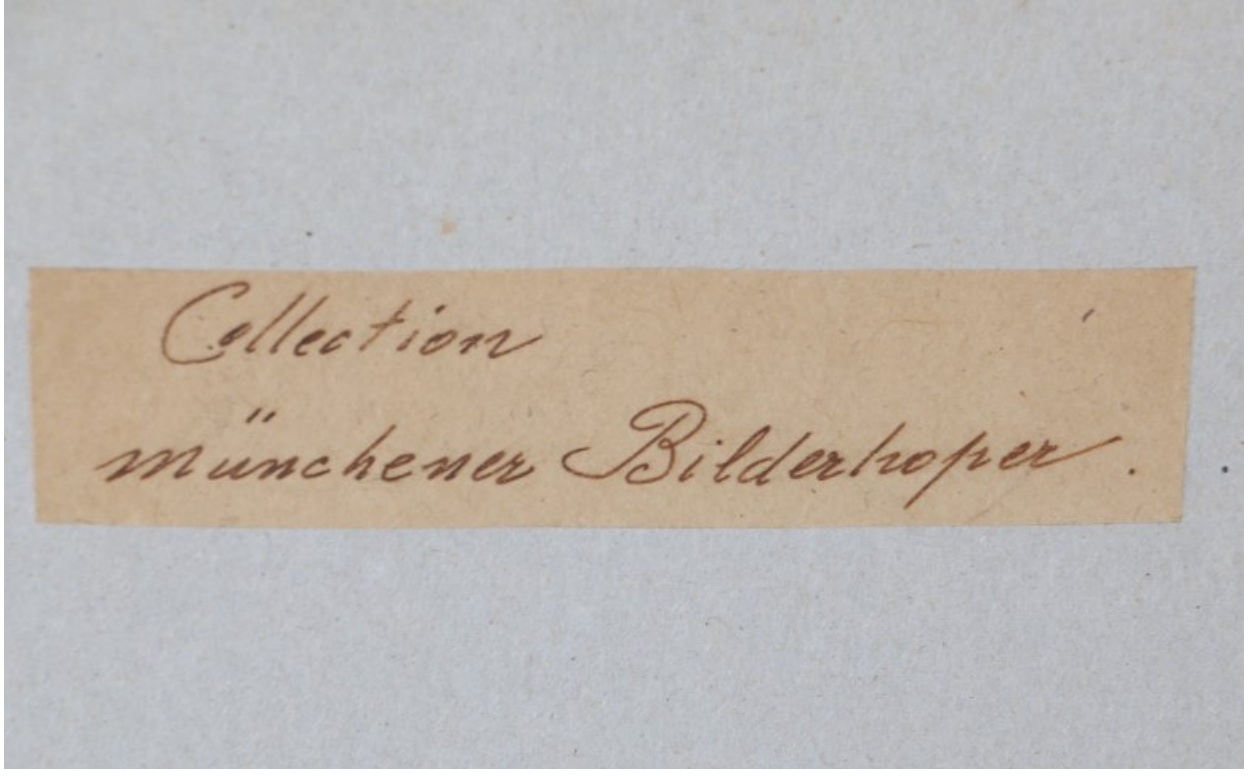 Collection
münchener Bilderhoper.